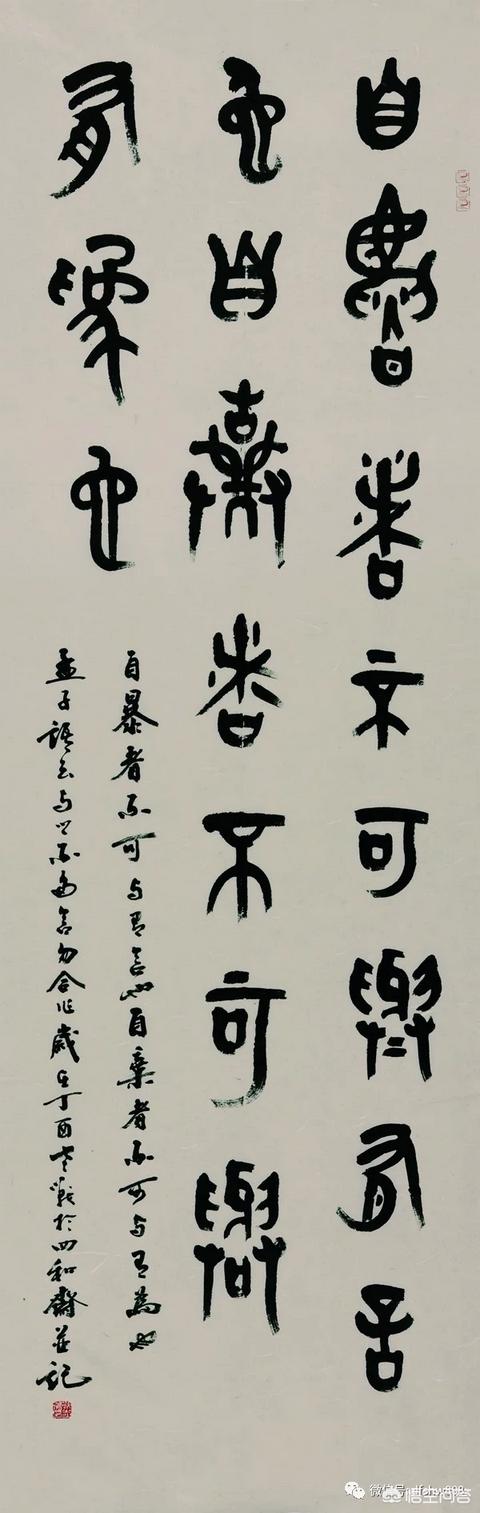 自暴者不可與有言
也自棄者不可與
有為也
自暴者不可与有言也自棄者不可与有為也
孟子語 与 不 言 合作歲在丁酉 於四和齋並記
微信号
悟空问答